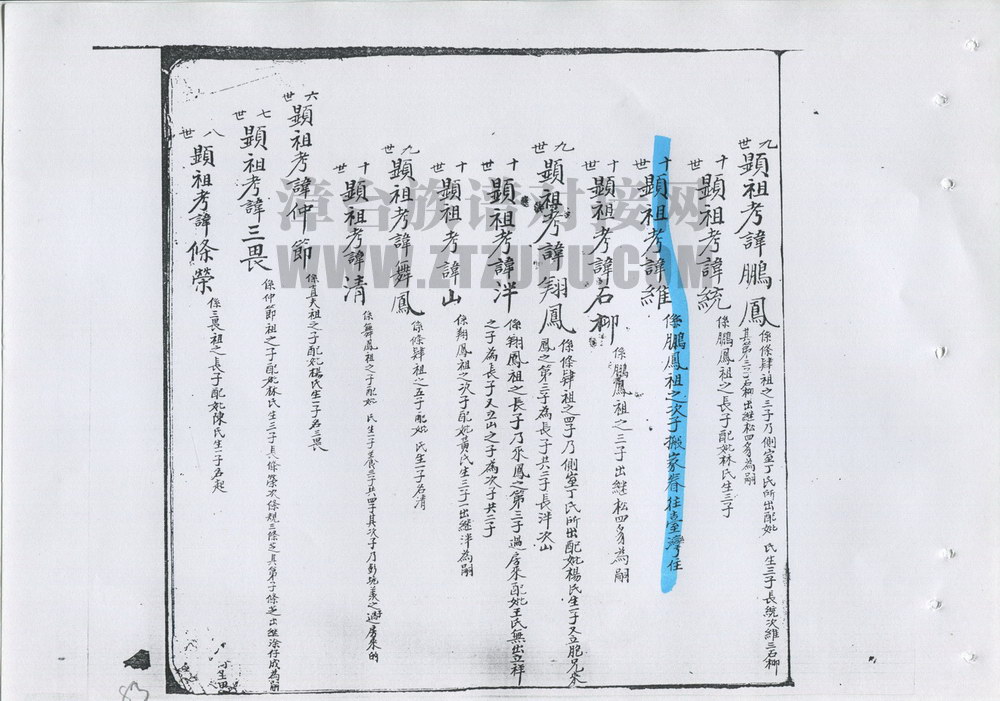 九世 顯祖考諱鵬鳳 係條肆祖之三子乃側室丁氏所出配妣 氏生三子長統次維三石柳
其第三子石柳出継松四多為嗣
十世 顯祖考諱統 係鵬鳳祖之長子配妣林氏生三子
十世 顯祖考諱維 係鵬鳳祖之次子搬家眷往臺灣住
十世 顯祖考諱石柳 係鵬鳳祖之三子出継松四多為嗣
九世 顯祖考諱翔鳳 係條肆祖之四子乃側室丁氏所出配妣楊氏生一子又立胞兄來
鳳之第三子為長子共二子長泮次山
十世 顯祖考諱泮 係翔鳳祖之長子乃來鳳之第三子過房來配妣王氏無出立祥
之子為長子又立山之子為次子共二子
十世 顯祖考諱山 係翔鳳祖之次子配妣黃氏生三子一出継泮為嗣
九世 顯祖考諱舞鳳 係條肆祖之五子配妣 氏生一子名清
十世 顯祖考諱清 係舞鳳祖之子配妣 氏生一子養三子共四子其次子乃彭之過房來的
六世 顯祖考諱仲節 係直夫祖之子配妣楊氏生一子名三畏
七世 顯祖考諱三畏 係仲節祖之子配妣林氏生三子長條榮次條規三條芝其第三子條芝出継涂仔成為嗣
八世 顯祖考諱條榮 係三畏祖之長子配妣陳氏生一子名起
漳台族谱对接网
WWW.ZTZUPU.COM
83